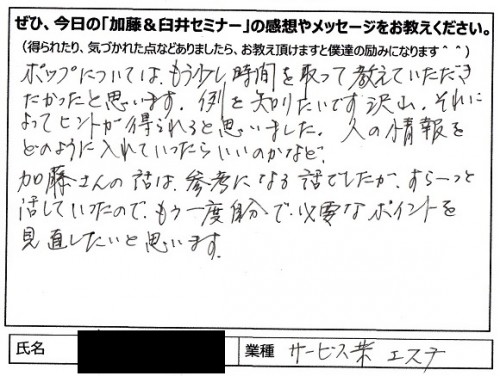 ぜひ、今日の「加藤＆臼井セミナー」の感想やメッセージをお教えください。
（得られたり、気づかれた点などありましたら、お教え頂けますと僕達の励みになります＾＾）
ポップについては、もう少し時間を取って教えていただき
たかったと思います。例を知りたいです沢山。それに
よってヒントが得られると思いました。人の情報を
どのように入れていったらいいのかなど、
加藤さんの話は、参考になる話でしたが、すらーっと
話していたので、もう一度自分で必要なポイントを
見直したいと思います。
氏名
業種 サービス業 エステ